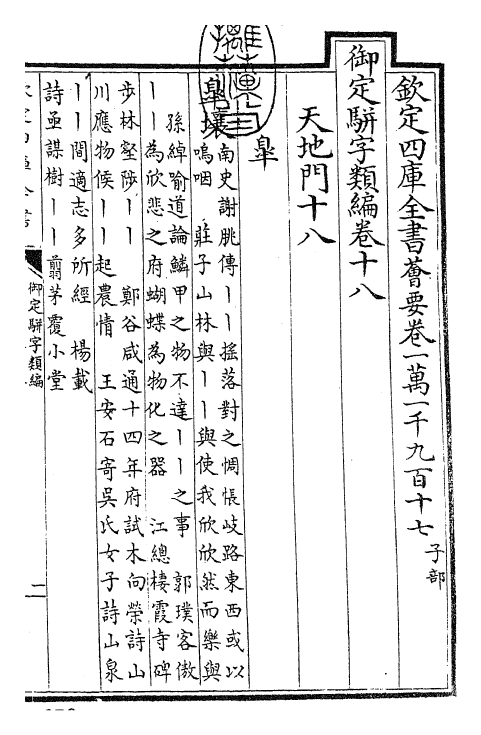 欽定四庫全書薈要卷一萬一千九百十七 子部
御定駢字類編卷十八
天地門十八
皐
皐壤 南史謝朓傳丨丨揺落對之惆悵岐路東西或以
嗚咽 莊子山林與丨丨與使我欣欣然而樂與
孫綽喻道論鱗甲之物不達丨丨之事 郭璞客傲
丨丨為欣悲之府蝴蝶為物化之器 江總棲霞寺碑
步林壑陟丨丨 鄭谷咸通十四年府試木向榮詩山
川應物候丨丨起農情 王安石寄吳氏女子詩山泉
丨丨間適志多所經 楊載
詩亟謀樹丨丨翦茅覆小堂
御定駢字類編
二